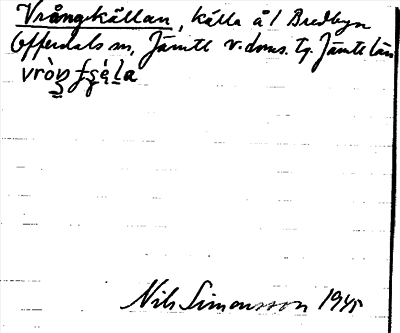 Vrångkällan, källa å / Bredbyn
Offerdals sn, Jämtl v. doms. tg. Jämtl län
Nils Simonsson 1945